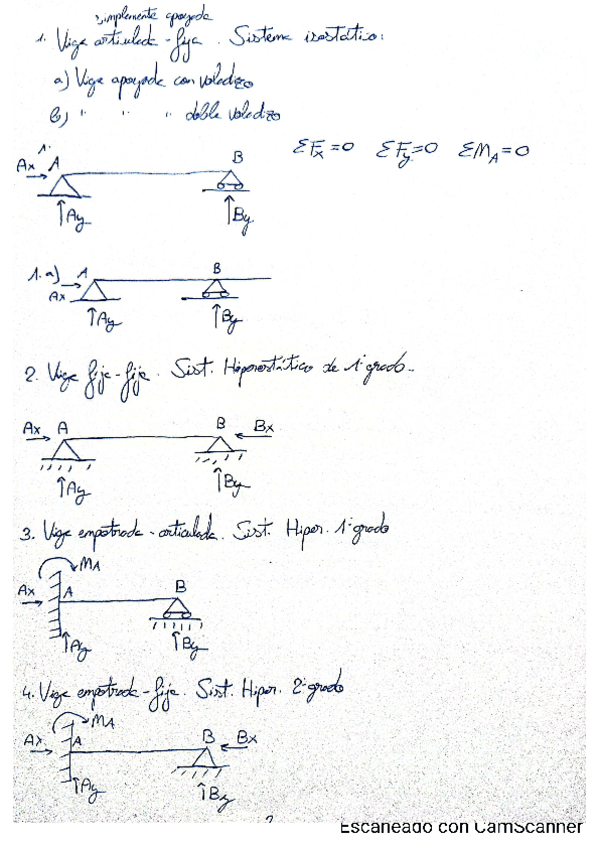 simplemente apoyada
1. Viga articulada - fija. Sistema isostático:
a) Viga apoyada con voladizo
b) " " " doble voladizo
1.
Ax A B
ΣFx=0 ΣFy=0 ΣMA=0
Ay By
1.a) A B
Ax
Ay By
2. Viga fija-fija. Sist. Hiperestático de 1º grado..
Ax A B Bx
Ay By
3. Viga empotrada - articulada. Sist. Hiper. 1º grado
MA
Ax A B
Ay By
4. Viga empotrada-fija. Sist. Hiper. 2º grado
MA
Ax A B Bx
Ay By
Escaneado con CamScanner